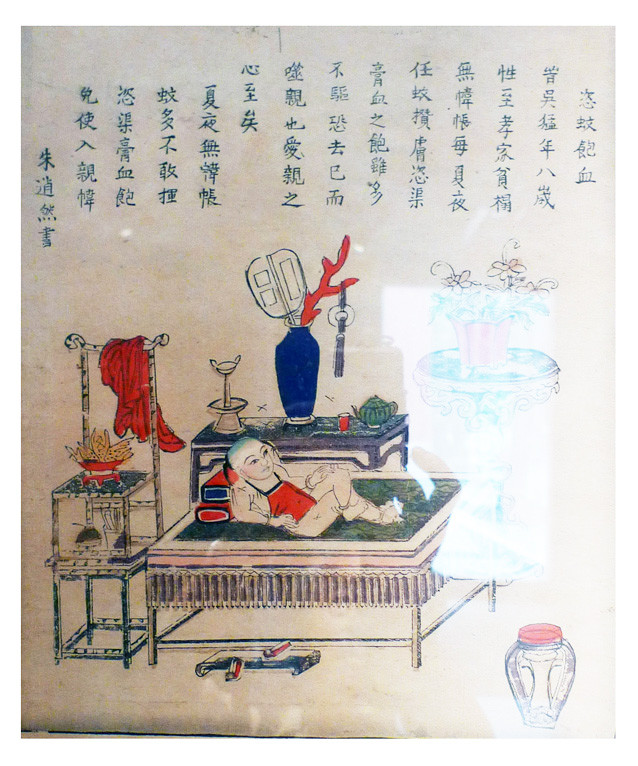 恣蚊飽血
昔吳猛年八歲
性至孝家貧榻
無幃帳每夏夜
任蚊攢膚恣渠
膏血之飽雖多
不驅恐去己而
噬親也愛親之
心至矣
夏夜無幃帳
蚊多不敢揮
恣渠膏血飽
免使入親幃
朱逍然書